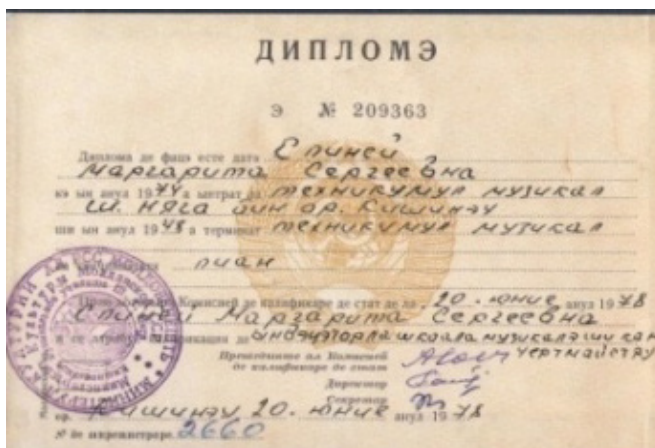 ДИПЛОМЭ
Э № 209363
Диплома де фацэ есте датэ Спиней
Маргарита Сергеевна
кэ ын анул 1974 а ынтрат ла техникумул музикал
Ш. Няга дин ор. Кишинэу
ши ын анул 1978 а терминат техникумул музикал
пиан
Комисией де калификаре де стат де ла 20. юние анул 1978
Спиней Маргарита Сергеевна
и се атрибуе калификация де шкоала музикалэ ши
Прешединте ал Комисией
де калификаре де стат
Директор
Секретар
ор. Кишинэу 20. юние анул 1978
№ де ынрежистраре 2660